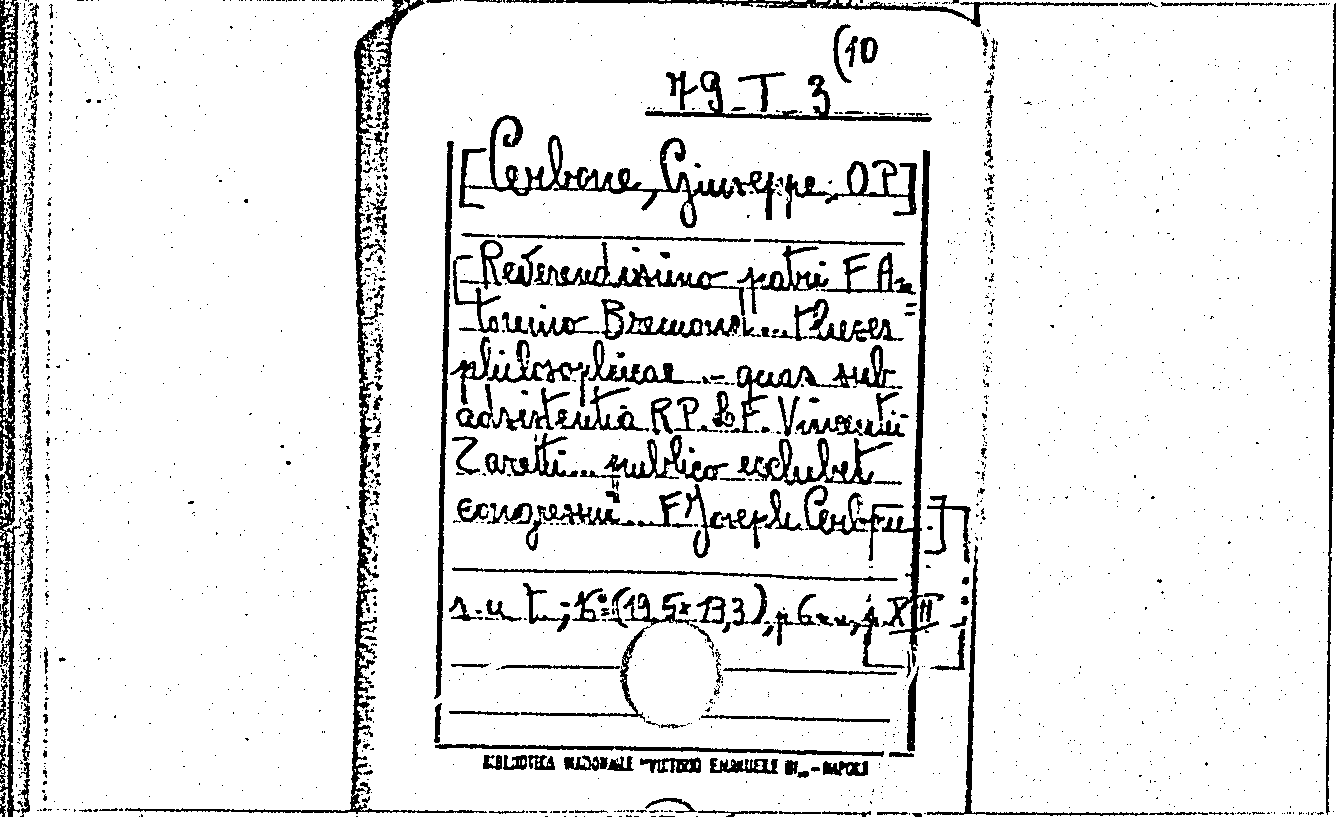 79_T_3 (10
[Cerbone, Giuseppe, OP]
[Reverendissimo patri F An=
tonino Bremond... theses
philosophicae.- quas sub
adsistentia RP. L. F. Vincentii
Zaretti... publico exhibet
congressui... F Joseph Cerbone.]
s.n.t.; 16°(19,5x13,3), p 6 nn, s. XVIII
BIBLIOTECA NAZIONALE "VITTORIO EMANUELE III„ - NAPOLI